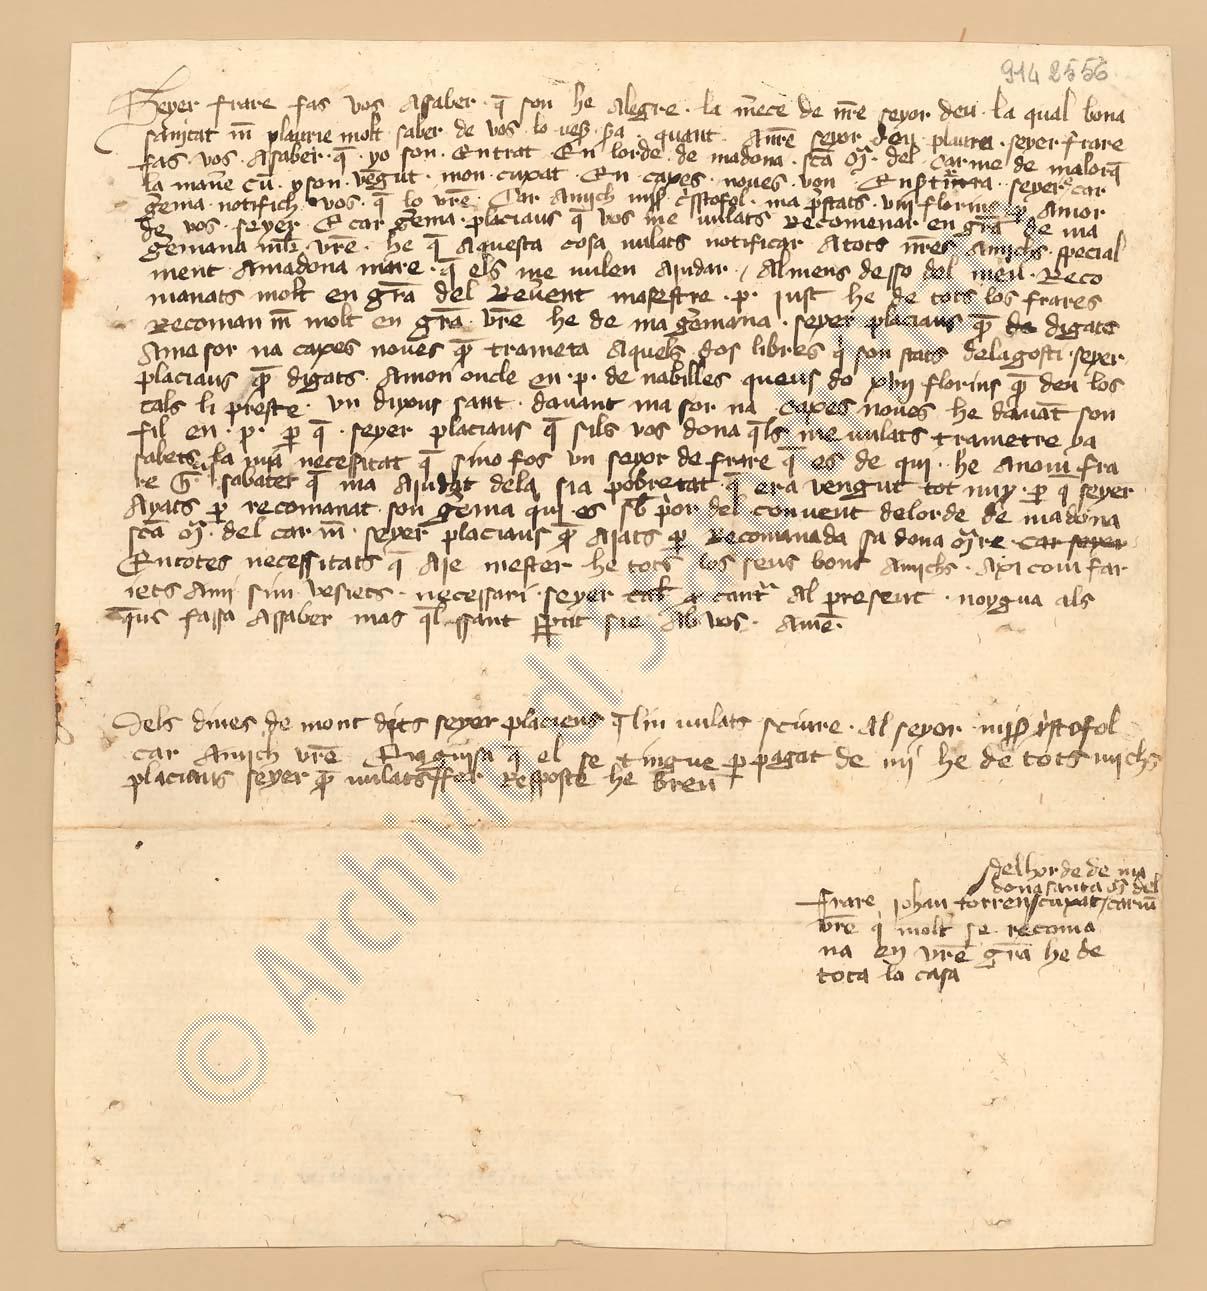 914 2556
Seyer frare fas vos assaber · q̄ son he alegre · la m̄ece de nr̄e seyor deu · la qual bona
sanitat m̄ plaurie molt saber de vos · quant · a nr̄e seyor deu · plaura · seyer frare
fas · vos · assaber · q̄ · yo son · entrat · en lorde · de madona · sc̄a · del · carme de malorq̄
la · yson · vēgut · mon · cuxat · en · capes · noues · seyer car
gēma · notifich · vos · q̄ lo vr̄e · car amich · ma p̄stats · viij florins · amor
de vos · seyer · e car gēma · placiaus q̄ vos me vulats recomenar en gr̄a de ma
gēmana · vr̄e · he q̄ aquesta cosa vulats notificar a tots nr̄es amichs · special
ment amadona mare · q̄ els me vulen aiudar · almens desso del meu · reco
manats molt en gr̄a del reuent maestre · p · iust he de tots los frares
recoman m̄ molt en gr̄a vr̄e he de ma gēmana · seyer placiaus q̄ digats
ama sor na capes noues q̄ trameta aquels dos libres q̄ son stats delagosti · seyer
placiaus q̄ digats · amon oncle en · p · de nabilles queus do xviij florins q̄ deu los
cals li preste · vn diyous sant · dauant ma sor na · capes noues he dauāt son
fil en · p · per q̄ · seyer placiaus q̄ sils vos dona q̄ls me vulats trametre ya
sabets la mia necessitat q̄ sino fos vn seyor de frare q̄ es de qui · he a nom fra
re G sabater q̄ ma aiudat dela sia pobretat q̄ era vengut tot nuy · per q̄ seyer
ayats per recomanat · son gēma qui es prior del conuent delorde de madona
sc̄a · del carm̄ · seyer placiaus q̄ aiats per recomanada sa dona car seyer
en totes necessitats q̄ aie mester he tots los seus bons amichs · axi com far
iets ami sim vesiets · necessari · seyer al present · noygua als
q̄us fassa assaber mas q̄l sant sp̄rit sie ab vos · amē ·
dels diues de mont seyer placiaus vulats scriure · al seyor
car amich vr̄e enguisa q̄ el se tingue per pagat de mi he de tots michs
placiaus seyer q̄ vulats ffer resposte he breu
delhorde de ma
dona santa del
frare johan torrens cuxat / carm̄
vr̄e q̄ molt se recoma
na en vr̄e gr̄a he de
tota la casa
© Archivio di Stato